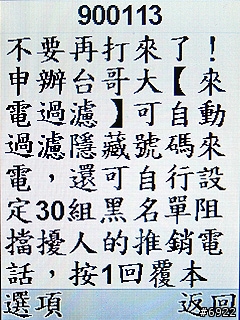 900113
不要再打來了！
申辦台哥大【來
電過濾】可自動
過濾隱藏號碼來
電，還可自行設
定30組黑名單阻
擋擾人的推銷電
話，按1回覆本
選項 返回
#6922